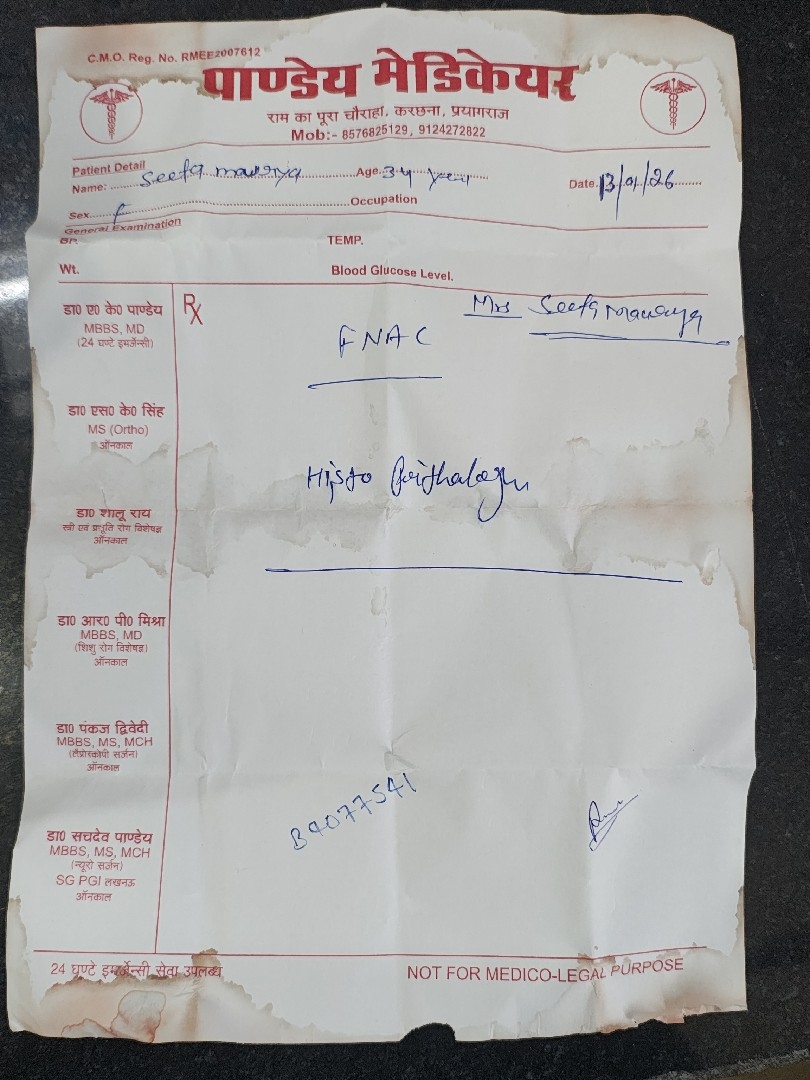 C.M.O. Reg. No. RMEE2007612
पाण्डेय मेडिकेयर
राम का पूरा चौराहा, करछना, प्रयागराज
Mob:- 8576825129, 9124272822
Patient Detail
Name: Seeta maurya Age. 34 year Date. 13/01/26
Sex. F Occupation
General Examination
BP. TEMP.
Wt. Blood Glucose Level.
Rx Mrs Seeta maurya
FNAC
Histo
डा० ए० के० पाण्डेय
MBBS, MD
(24 घण्टे इमर्जेन्सी)
डा० एस० के० सिंह
MS (Ortho)
ऑनकाल
डा० शालू राय
स्त्री एवं प्रसूति रोग विशेषज्ञ
ऑनकाल
डा० आर० पी० मिश्रा
MBBS, MD
(शिशु रोग विशेषज्ञ)
ऑनकाल
डा० पंकज द्विवेदी
MBBS, MS, MCH
(लैप्रोस्कोपी सर्जन)
ऑनकाल
डा० सचदेव पाण्डेय
MBBS, MS, MCH
(न्यूरो सर्जन)
SG PGI लखनऊ
ऑनकाल
B4077541
24 घण्टे इमर्जेन्सी सेवा उपलब्ध
NOT FOR MEDICO-LEGAL PURPOSE